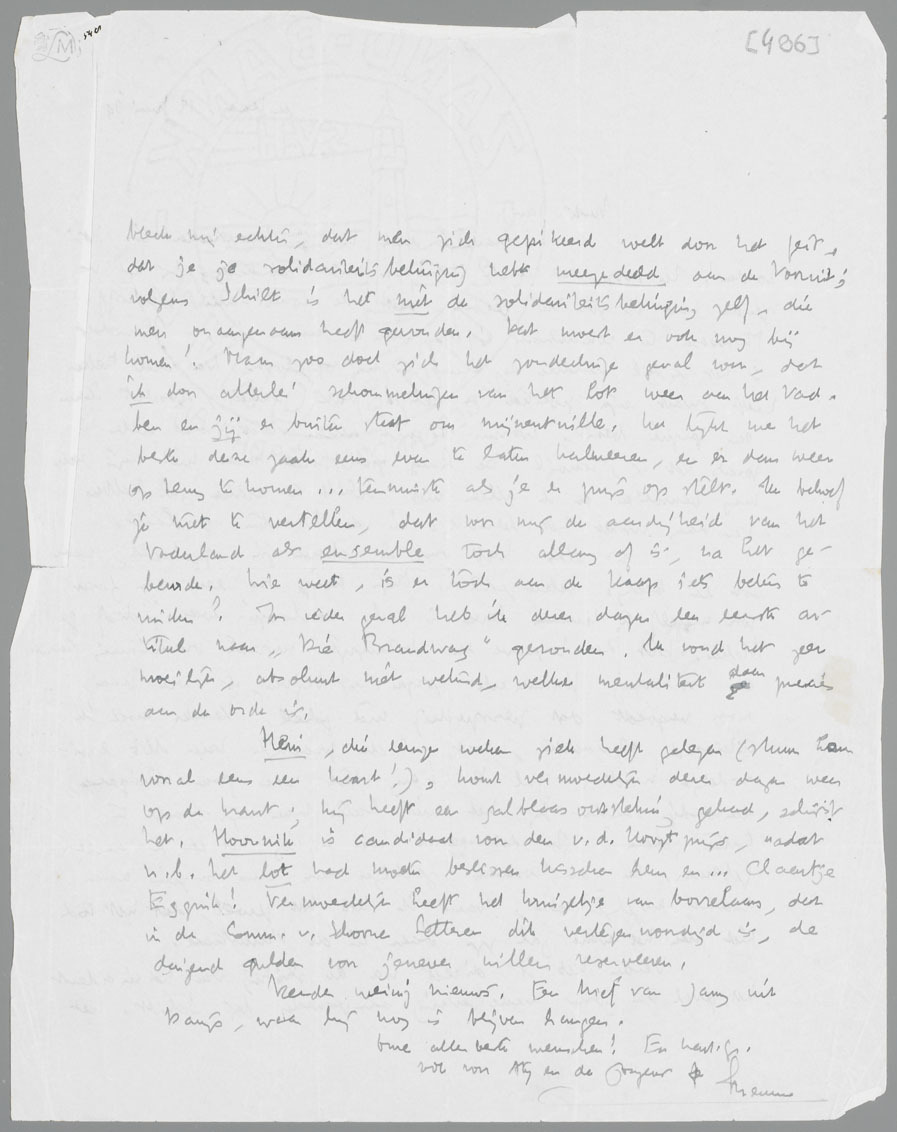 [486]
bleek mij echter, dat men zich gepikeerd voelt door het feit,
dat je je solidariteitsbetuiging hebt meegedeeld aan de Vooruit;
volgens Schilt is het niet de solidariteitsbetuiging zelf, die
men onaangenaam heeft gevonden. Dat moest er ook nog bij
komen! Maar zoo doet zich het zonderlinge geval voor, dat
ik door allerlei schommelingen van het lot weer aan het Vad.
ben en jij er buiten staat om mijnentwille. Het lijkt me het
beste deze zaak eens even te laten kalmeeren, en er dan weer
op terug te komen... tenminste als je er prijs op stelt. Ik behoef
je niet te vertellen, dat voor mij de aardigheid van het
Vaderland als ensemble toch allang af is, na het ge-
beurde. Wie weet, is er toch aan de Kaap iets beters te
vinden? In ieder geval heb ik dezer dagen een eerste ar-
tikel naar „Die Brandwag" gezonden. Ik vond het zeer
moeilijk, absoluut niet wetend, welke mentaliteit daar precies
aan de orde is.
Henri, die eenige weken ziek heeft gelegen (stuur hem
vooral eens een kaart!), komt vermoedelijk dezer dagen weer
op de krant; hij heeft een galblaasontsteking gehad, schijnt
het. Hoornik is candidaat voor den v.d. Hoogt prijs, nadat
n.b. het lot had moeten beslissen tusschen hem en... Claartje
Eggink! Vermoedelijk heeft het kringetje van borrelaars, dat
in de Comm. v. Schoone Letteren dik vertegenwoordigd is, de
duizend gulden voor jenever willen reserveeren.
Verder weinig nieuws. Een brief van Jany uit
Parijs, waar hij nog is blijven hangen.
beste menschen! En hart. gr.
ook voor Atie en de
Menno